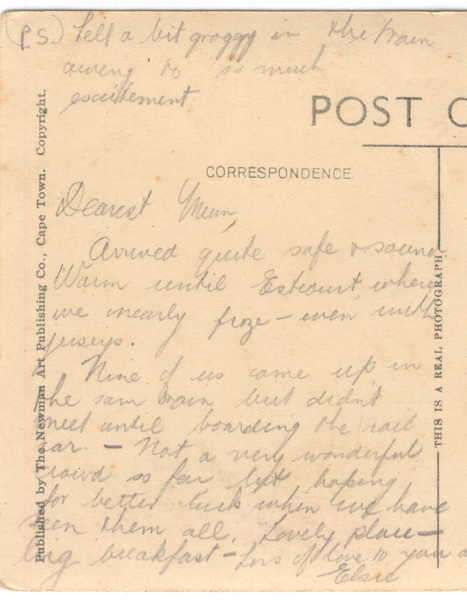 P.S. Felt a bit groggy in the train
owing to so much
excitement.
POST C
CORRESPONDENCE
Dearest Mum,
Arrived quite safe & sound
Warm until Estcourt where
we nearly froze – even with
jerseys.
Nine of us came up in
the sam train but didn't
meet until boarding the rail
car – Not a very wonderful
crowd so far but hoping
for better luck when we have
seen them all. Lovely place –
big breakfast – Lots of love to you a
Elsie
Published by The Newman Art Publishing Co., Cape Town. Copyright.
THIS IS A REAL PHOTOGRAPH